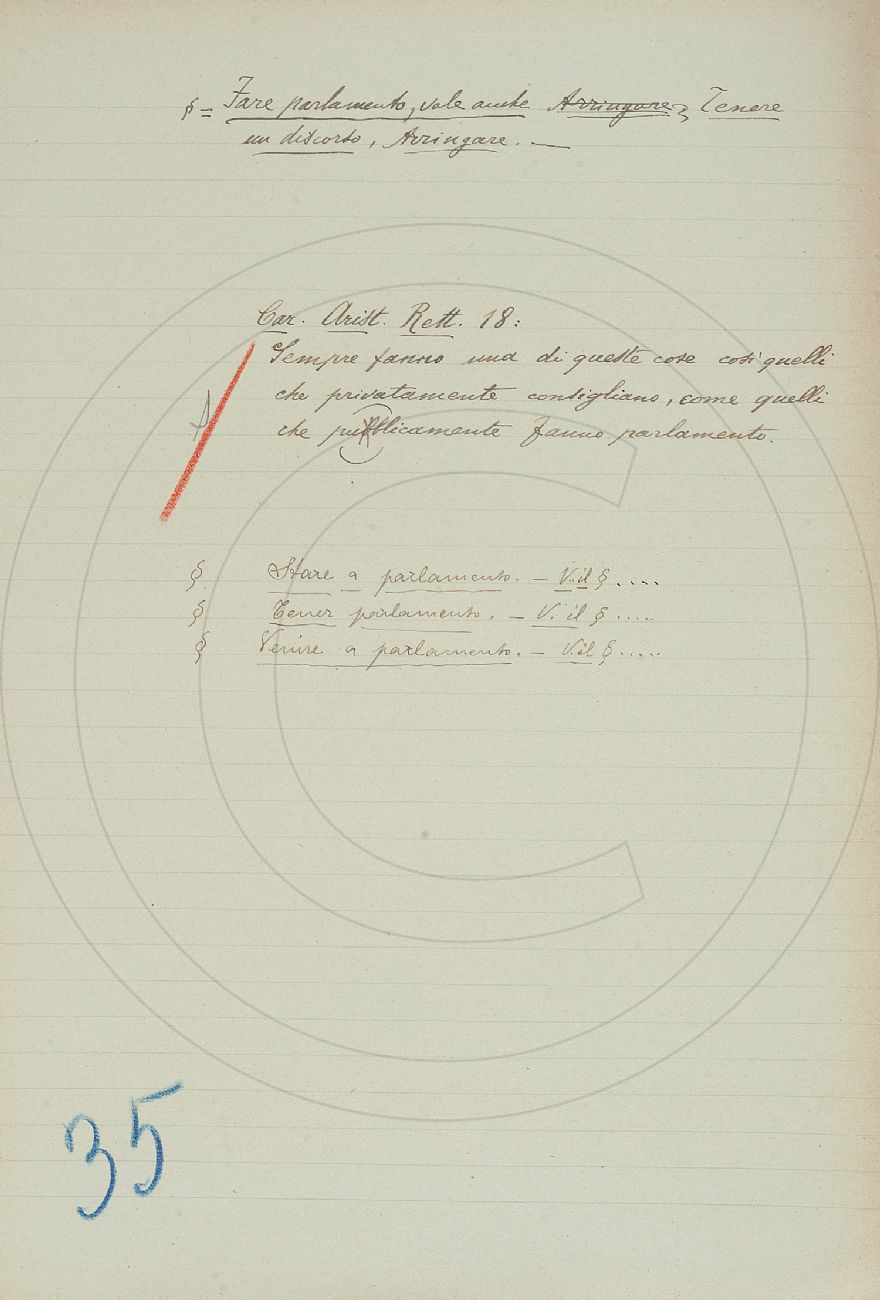 § = Fare parlamento, vale anche Arringare, Tenere
un discorso, Arringare. —
Car. Arist. Rett. 18:
Sempre fanno una di queste cose così quelli
che privatamente consigliano, come quelli
che pubblicamente fanno parlamento.
§ Stare a parlamento. — V. il § ....
§ Tener parlamento. — V. il § ....
§ Venire a parlamento. — V. il § .....
35